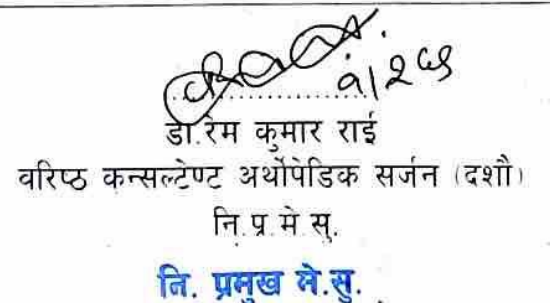 १/२५
डा.रेम कुमार राई
वरिष्ठ कन्सल्टेण्ट अर्थोपेडिक सर्जन (दशौ)
नि.प्र.मे.सु.
नि. प्रमुख मे.सु.